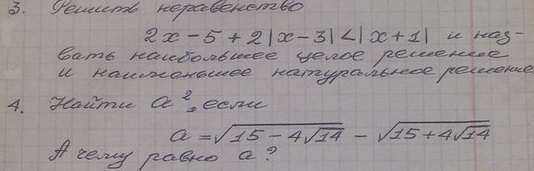 3. Решить неравенство
2x - 5 + 2|x - 3| < |x + 1| и наз-
вать наибольшее целое решение
и наименьшее натуральное решение
4. Найти a², если
a = √(15 - 4√14) - √(15 + 4√14)
А чему равно a?